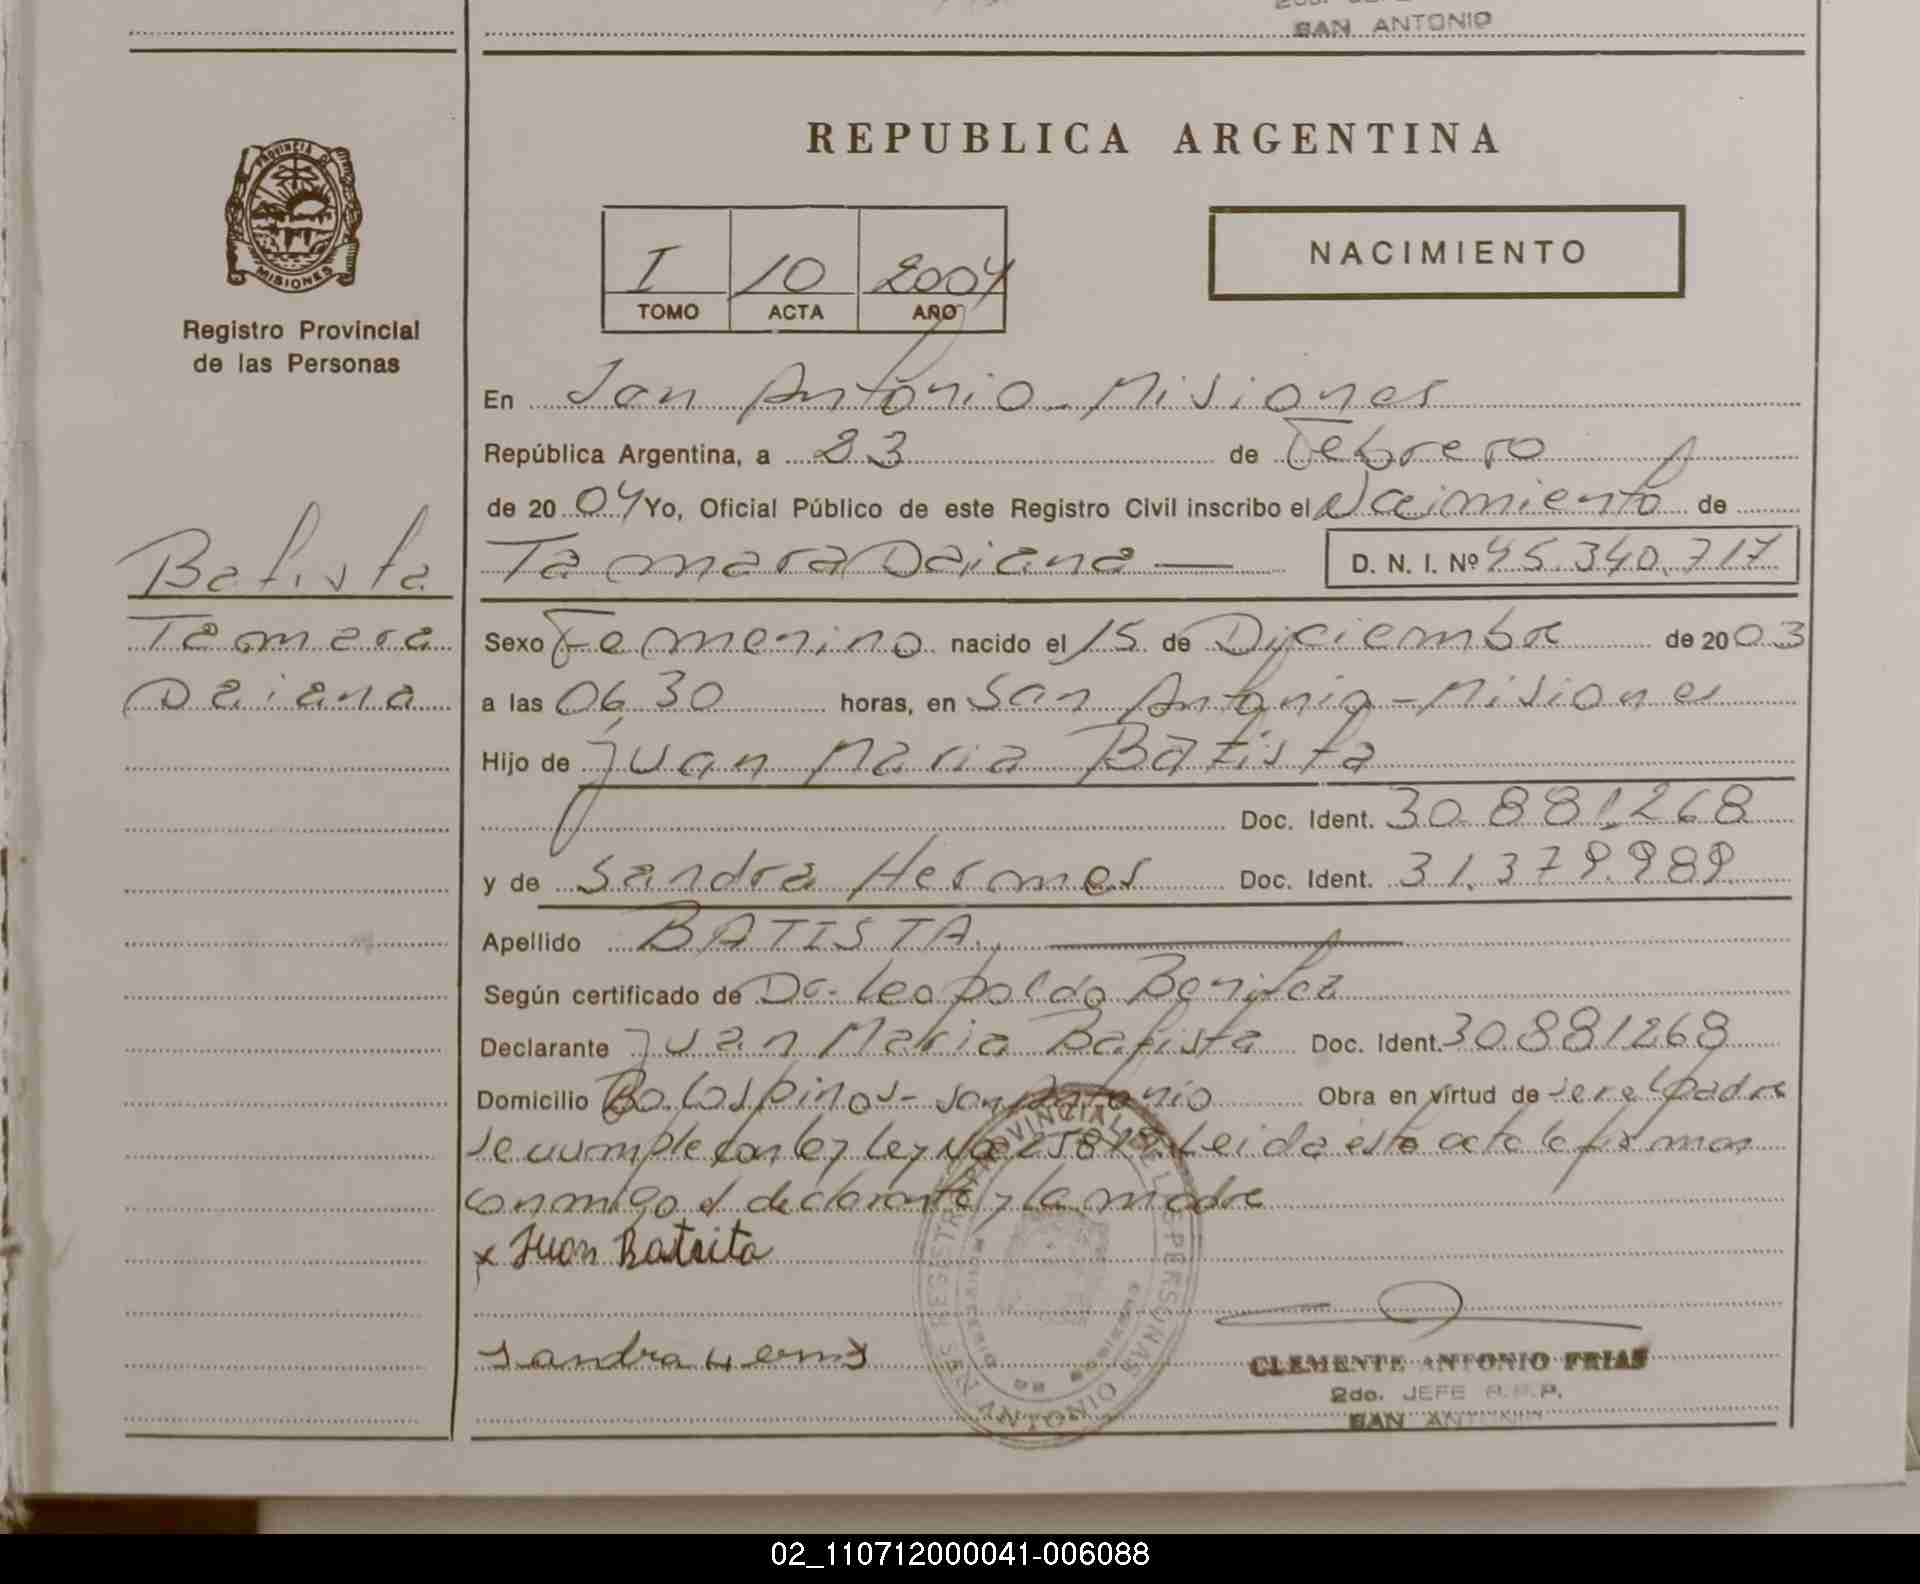 SAN ANTONIO
REPUBLICA ARGENTINA
PROVINCIA DE
MISIONES
Registro Provincial
de las Personas
I 10 2004
TOMO ACTA AÑO
NACIMIENTO
Batista
Tamara
Daiana
En San Antonio - Misiones
República Argentina, a 23 de Febrero
de 2004 Yo, Oficial Público de este Registro Civil inscribo el Nacimiento de
Tamara Daiana — D. N. I. Nº 45.340.717
Sexo Femenino nacido el 15 de Diciembre de 2003
a las 06,30 horas, en San Antonio - Misiones
Hijo de Juan Maria Batista
Doc. Ident. 30.881.268
y de Sandra Hermes Doc. Ident. 31.379.989
Apellido BATISTA.
Según certificado de Dr. Leopoldo Benitez
Declarante Juan Maria Batista Doc. Ident. 30.881268
Domicilio Bo. Los pinos - San Antonio Obra en virtud de ser el padre
se cumple con ley Leida esta acta la firman
conmigo el declarante y la madre
x Juan Batsita
Sandra Herms
CLEMENTE ANTONIO FRIAS
2do. JEFE R.P.P.
SAN ANTONIO
02_110712000041-006088